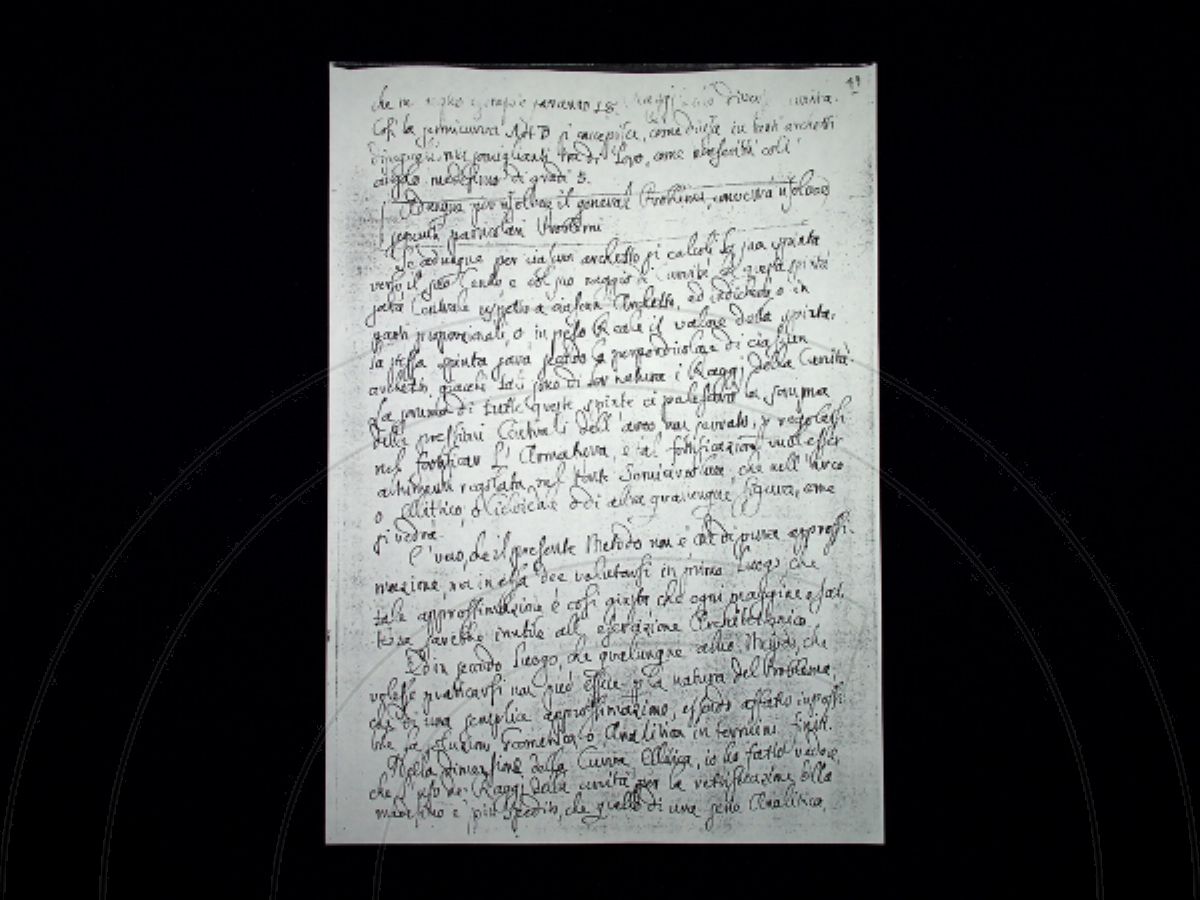 49
che in
Così la semicurva AdB si concepisca, come divisa in tanti archetti
somiglianti tra di loro, come
angolo medesimo di gradi 5.
Adunque per risolvere il general Problema, converrà risolvere
seguenti particolari Problemi
Se adunque per ciascun archetto si calcoli la sua spinta
verso il suo Centro e col suo raggio di Curvità, e questa spinta
sarà Centrale rispetto a ciascun Archetto, ed indicherà o in
parti proporzionali, o in peso Reale il valore della spinta.
la stessa spinta sarà secondo la perpendicolare di ciascun
archetto, giacchè tali sono di lor natura i Raggi della Curvità
La somma di tutte queste spinte ci paleserà la somma
delle pressioni Centrali dell'arco
nel fortificar L'Armatura, e tal fortificazione vuol esser
altrimenti regolata nel Ponte Semicircolare, che nell'arco
o Ellittico, o Cicloidale o di altra qualunque figura, come
si vedrà.
E' vero, che il presente Metodo non è che di pura approssi-
mazione, ma in essa dee valutarsi in primo Luogo che
tale approssimazione è così giusta che ogni maggiore esat-
tezza sarebbe inutile all' esercizione Architettonico
Ed in secondo Luogo, che qualunque altro Metodo, che
volesse praticarsi non può essere per la natura del Problema,
che di una semplice approssimazione, essendo affatto impossi-
bile la soluzione Geometrica o Analitica in termini finiti.
Nella dimensione della Curva Ellittica, io ho fatto vedere,
che l'uso de' Raggi della curvità per la rettificazione della
medesima è più spedito, che quello di una serie Analitica,